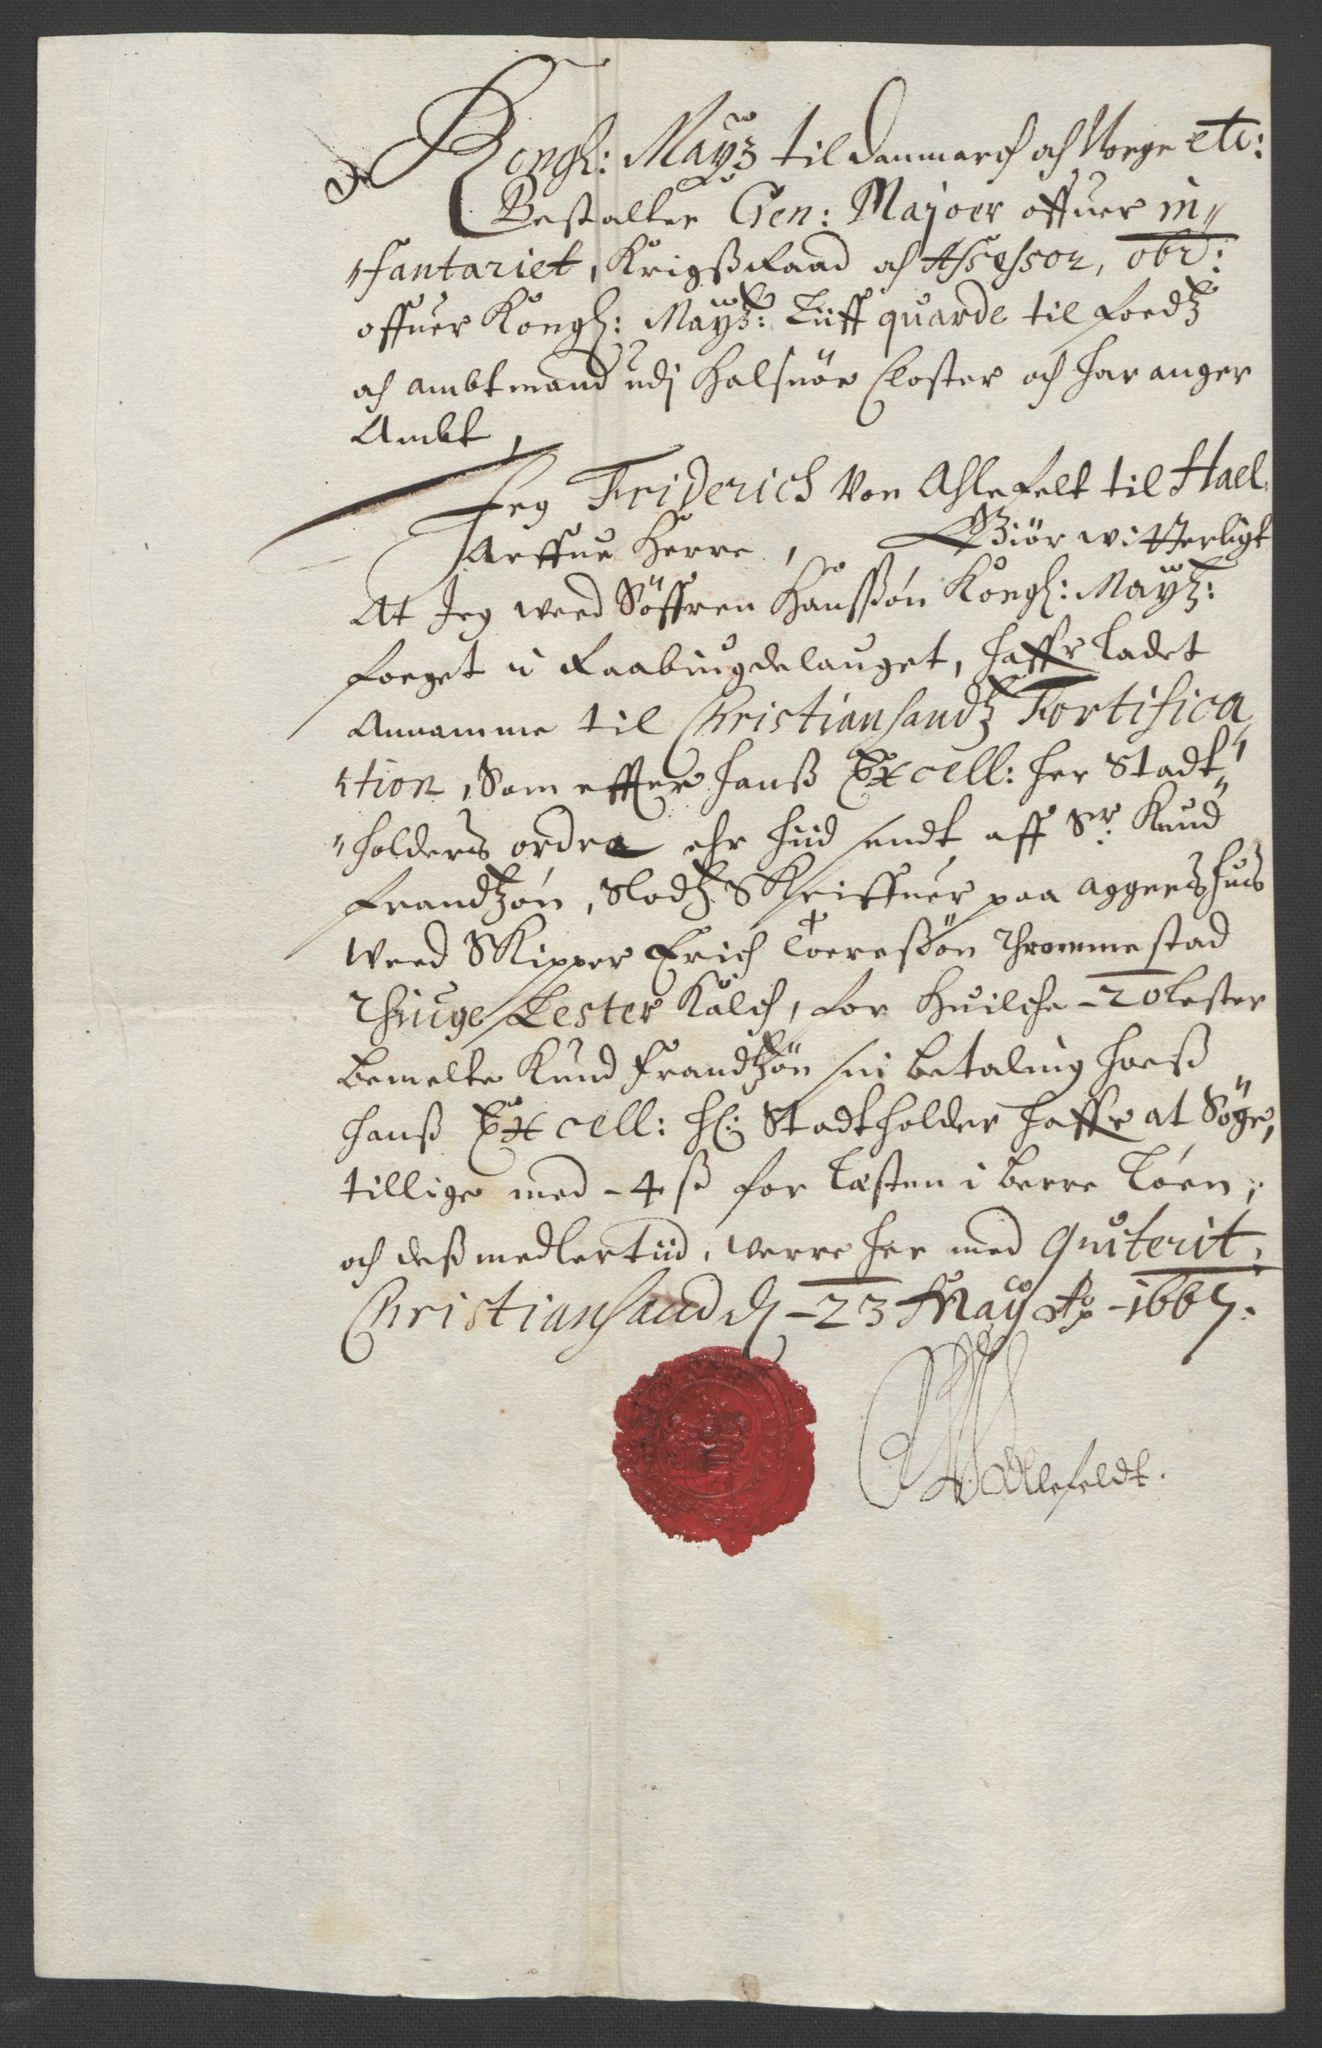 Kongl: Maÿtz til Danmarch och Norge etc:
Bestalter Gen: Majoer offuer in„
„fantariet, Krigsßraad och Assessor, obr:
offuer Kongl: Maÿtz: Liiff quarde til foedtz
och ambtmand udj Halsnöe Closter och Haranger
Ambt,
Jeg Friderich Von Ahlefelt til Hael
Arffue Herre, Giör witterligt
At Jeg weed Söffren Hanssøn Kongl: Maÿtz:
foeget i Raabiugdelauget, haffr ladet
Annamme til Christiansandtz Fortifica
„tion, Som effter hanß Excell: her Stadt„
„holders ordre ehr hiid sendt aff Sr. Knud
Frandtzøn, Slodtz Skriffuer paa aggers huus
weed Skipper Erich Toeressøn Thrommestad
Thiuge Lester Kalch, for huilche -20 Lester
bemelte Knud Frandtzøn sin betaling hoeß
hanß Excell: Hl: Stadtholder haffr at Söge,
tillige med -4 ß for læsten i berre Løen,
och deß medlertiid, werre her med quiterit,
Christiansand dj -23 Maÿ Ao -1667.
Ahlefeldt.